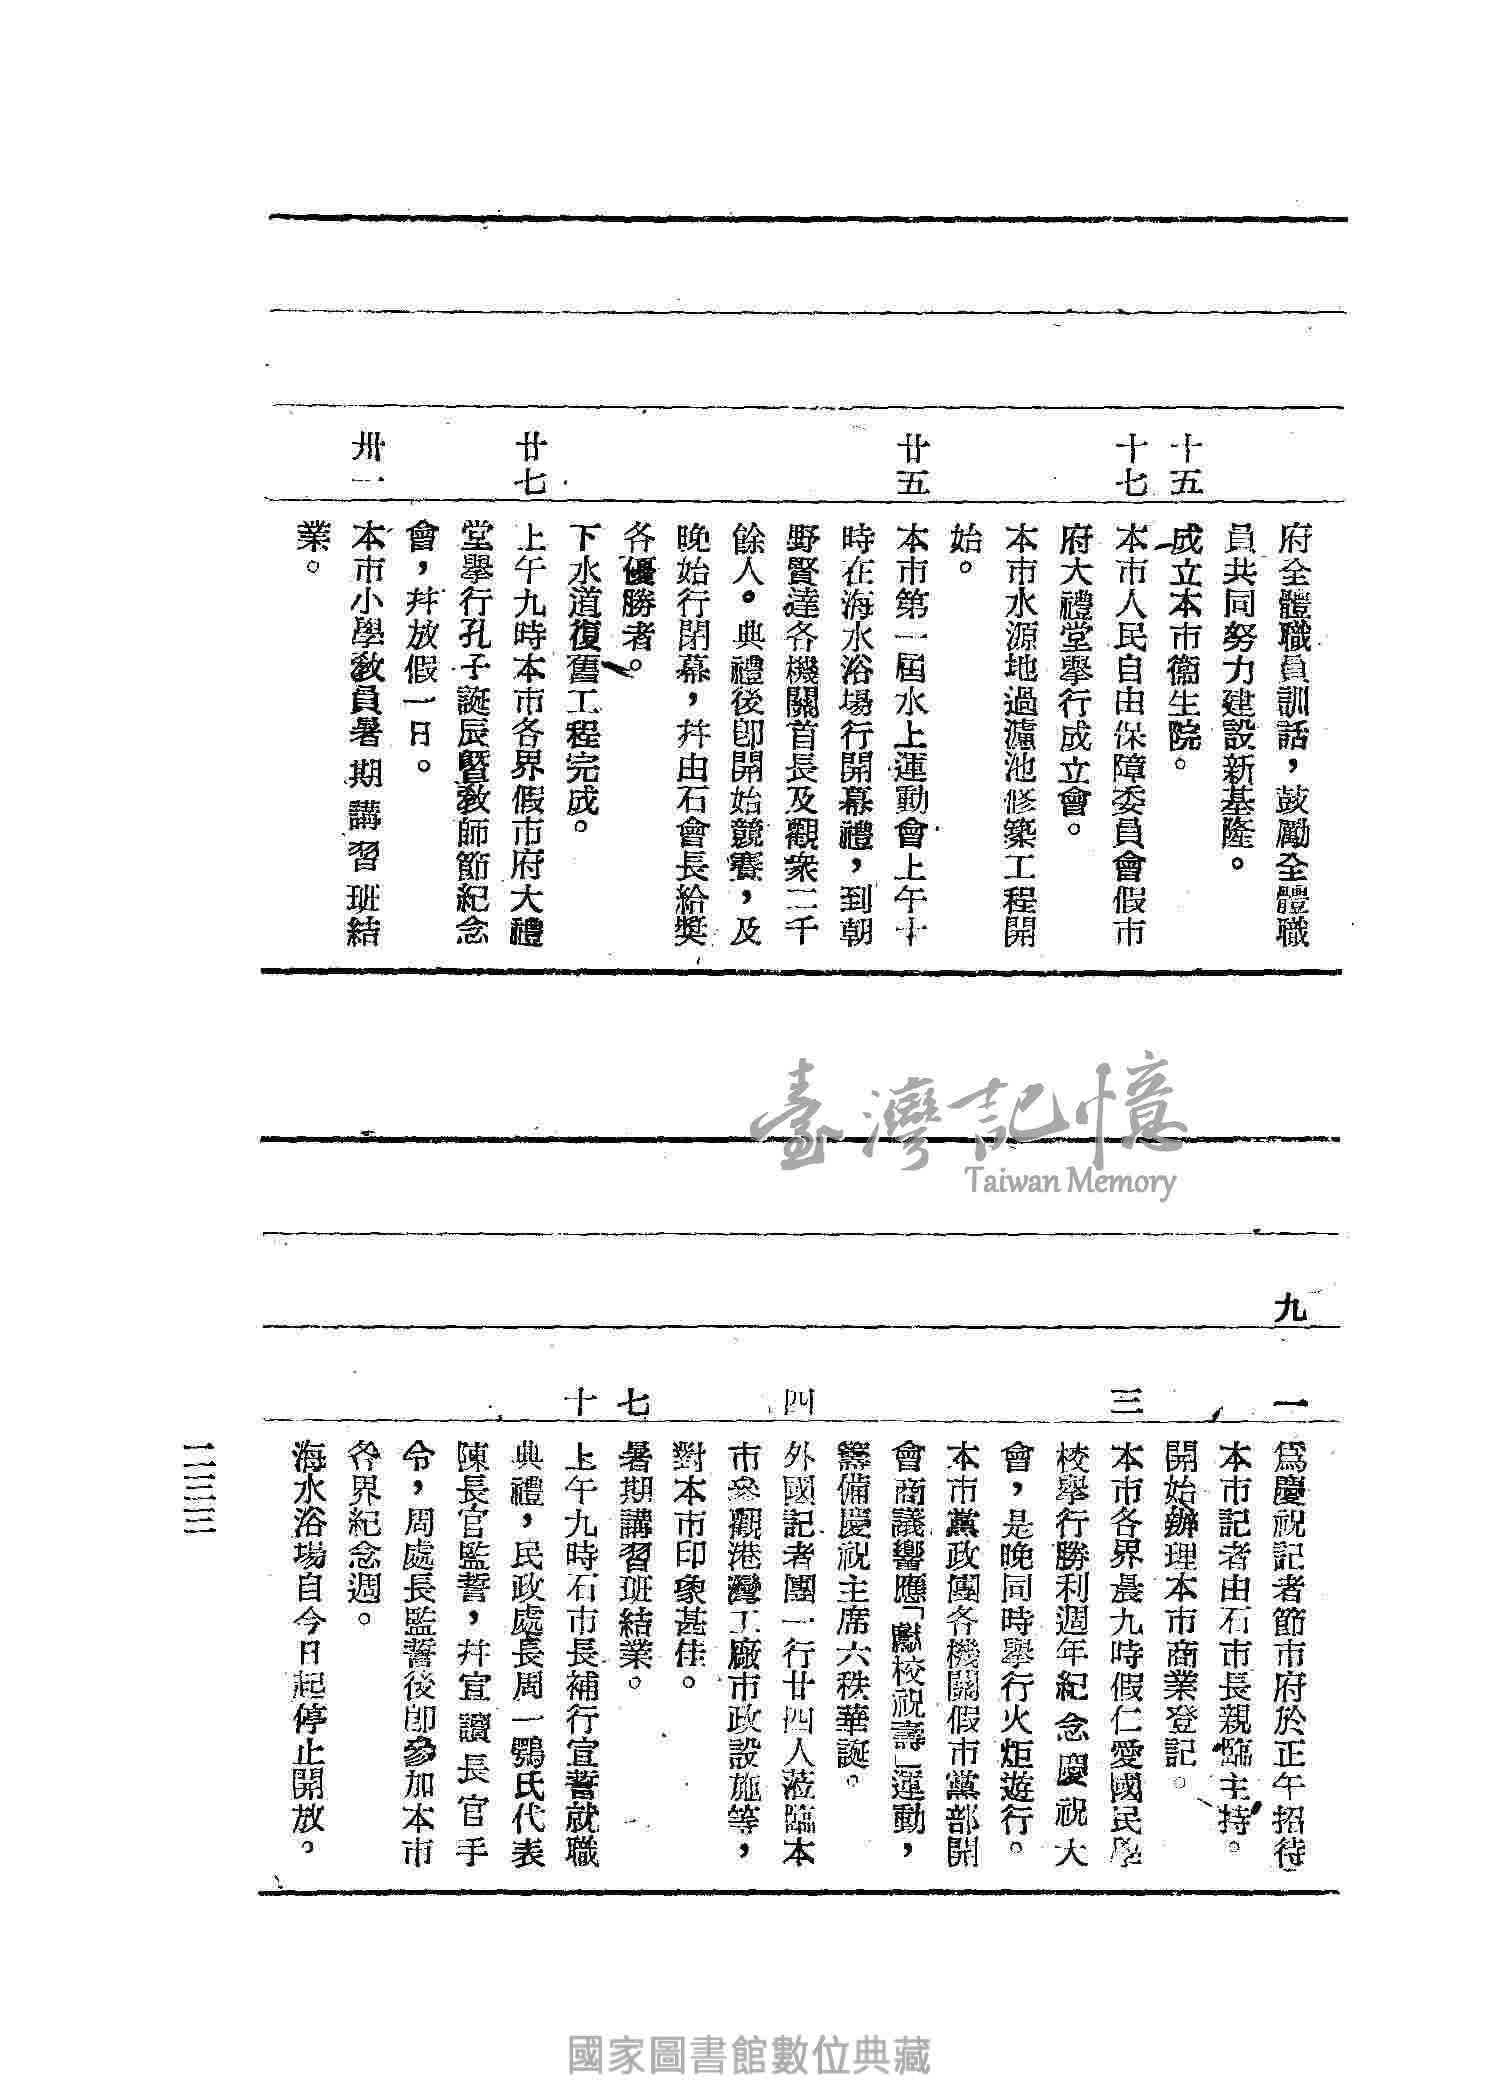 府全體職員訓話，鼓勵全體職
員共同努力建設新基隆。
十五
成立本市衞生院。
十七
本市人民自由保障委員會假市
府大禮堂舉行成立會。
本市水源地過濾池修築工程開
始。
廿五
本市第一屆水上運動會上午十
時在海水浴場行開幕禮，到朝
野賢達各機關首長及觀衆二千
餘人。典禮後卽開始競賽，及
晚始行閉幕，幷由石會長給獎
各優勝者。
下水道復舊工程完成。
廿七
上午九時本市各界假市府大禮
堂舉行孔子誕辰暨敎師節紀念
會，幷放假一日。
卅一
本市小學敎員暑期講習班結
業。
九
一
爲慶祝記者節市府於正午招待
本市記者由石市長親臨主持。
開始辦理本市商業登記。
三
本市各界晨九時假仁愛國民學
校舉行勝利週年紀念慶祝大
會，是晚同時舉行火炬遊行。
本市黨政團各機關假市黨部開
會商議響應「獻校祝壽」運動，
籌備慶祝主席六秩華誕。
四
外國記者團一行廿四人蒞臨本
市參觀港灣工廠市政設施等，
對本市印象甚佳。
七
暑期講習班結業。
十
上午九時石市長補行宣誓就職
典禮，民政處長周一鶚氏代表
陳長官監誓，幷宣讀長官手
令，周處長監誓後卽參加本市
各界紀念週。
海水浴場自今日起停止開放。
二三三
臺灣記憶
Taiwan Memory
國家圖書館數位典藏